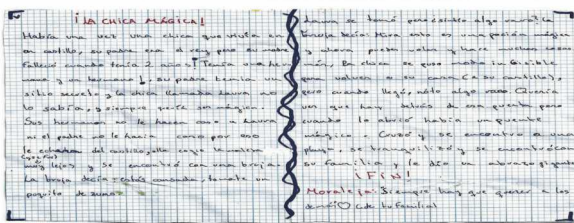 ¡LA CHICA MÁGICA!
Había una vez una chica que vivía en
un castillo, su padre era el rey pero su madre
falleció cuando tenía 2 años. Tenía una her
mana y un hermano, su padre tenía un
sillo secreto, y la chica llamada Laura no
lo sabía, y siempre quería ser mágica.
Sus hermanos no le hacía caso a Laura
ni el padre no le hacía caso por eso
le echaron del castillo, ella cogió la maleta
y se fue
muy lejos y se encontró con una bruja
La bruja decía: estás cansada, tomate un
poquito de zumo.
Laura se tomó pero sintió algo
bruja decía: Mira esto es una poción mágica
y ahora puedes volar y hacer muchas cosas
más, la chica se puso invisible
para volver a su casa (a su castillo),
pero cuando llegó, notó algo raro Quería
ver que hay detrás de esa puerta pero
cuando la abrió había un puente
mágico. Cruzó y se encontró a una
playa, se tranquilizó y se encontró con
su familia y le dió un abrazo gigante
¡FIN!
Moraleja: Siempre hay que querer a los
de tu familia!